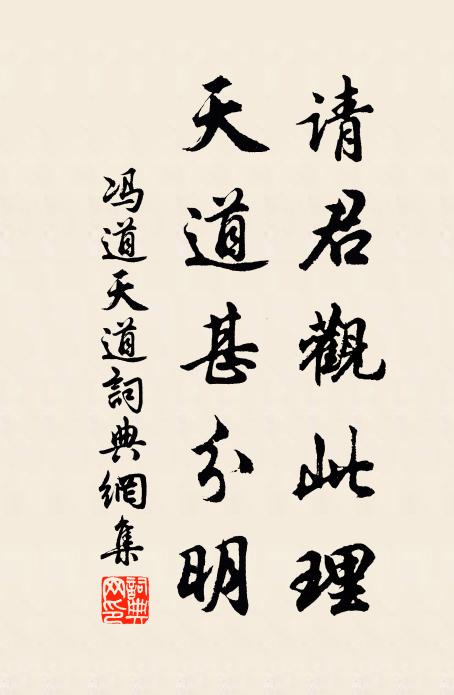 请君觀此理
天道甚分明
冯道天道詞典網集
詞典
网印